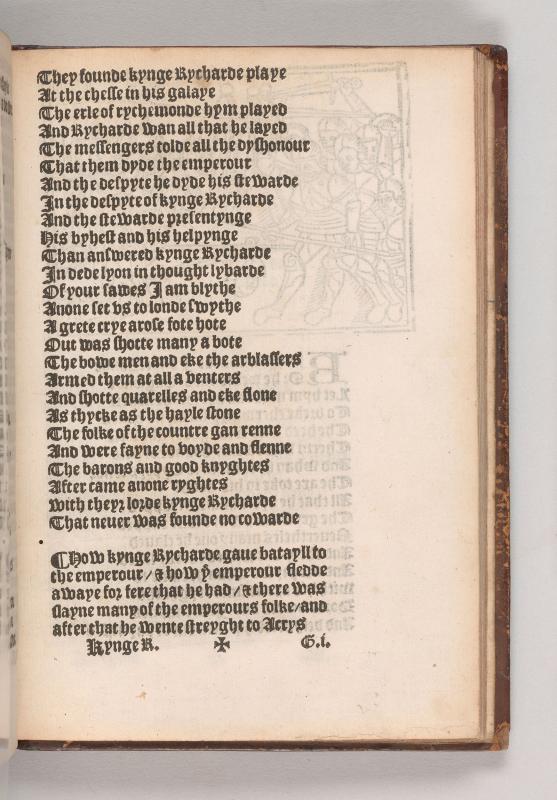 They founde kynge Rycharde playe
At the chesse in his galaye
The erle of rychemonde hym played
And Rycharde wan all that he layed
The messengers tolde all the dyshonour
That them dyde the emperour
And the despyte he dyde his stewarde
In the despyte of kynge Rycharde
And the stewarde presentynge
His byhest and his helpynge
Than answered kynge Rycharde
In dede lyon in thought lybarde
Of your sawes I am blythe
Anone set vs to londe swythe
A grete crye arose fote hote
Out was shotte many a bote
The bowe men and eke the arblasters
Armed them at all a venters
And shotte quarelles and eke flone
As thycke as the hayle stone
The folke of the countre gan renne
And were fayne to voyde and flenne
The barons and good knyghtes
After came anone ryghtes
with theyr lorde kynge Rycharde
That neuer was founde no cowarde
¶How kynge Rycharde gaue batayll to
the emperour / & how yͤ emperour fledde
awaye for fere that he had / & there was
slayne many of the emperours folke / and
after that he wente streyght to Acrys
Kynge R. ✠ G.i.